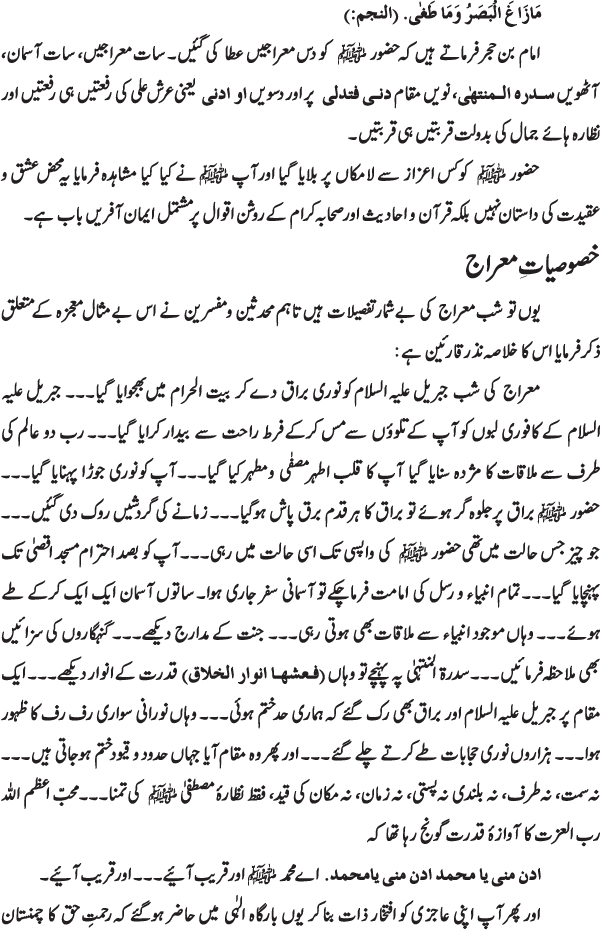 مَازَاغَ الْبَصَرُ وَمَا طَغٰی. (النجم:)
امام بن حجر فرماتے ہیں کہ حضور ﷺ کو دس معراجیں عطا کی گئیں۔ سات معراجیں، سات آسمان،
آٹھویں سدرہ المنتھی، نویں مقام دنی فتدلی پر اور دسویں او ادنی یعنی عرش علی کی رفعتیں ہی رفعتیں اور
نظارہ ہائے جمال کی بدولت قربتیں ہی قربتیں۔
حضور ﷺ کو کس اعزاز سے لا مکاں پر بلایا گیا اور آپ ﷺ نے کیا کیا مشاہدہ فرمایا یہ محض عشق و
عقیدت کی داستان نہیں بلکہ قرآن و احادیث اور صحابہ کرام کے روشن اقوال پر مشتمل ایمان آفریں باب ہے۔
خصوصیاتِ معراج
یوں تو شب معراج کی بے شمار تفصیلات ہیں تاہم محدثین و مفسرین نے اس بے مثال معجزہ کے متعلق
ذکر فرمایا اس کا خلاصہ نذر قارئین ہے:
معراج کی شب جبریل علیہ السلام کو نوری براق دے کر بیت الحرام میں بھجوایا گیا۔۔۔ جبریل علیہ
السلام کے کافوری لبوں کو آپ کے تلوؤں سے مس کر کے فرط راحت سے بیدار کرایا گیا۔۔۔ رب دو عالم کی
طرف سے ملاقات کا مژدہ سنایا گیا آپ کا قلب اطہر مصفٰی و مطہر کیا گیا۔۔۔ آپ کو نوری جوڑا پہنایا گیا۔۔۔
حضور ﷺ براق پر جلوہ گر ہوئے تو براق کا ہر قدم برق پاش ہوگیا۔۔۔ زمانے کی گردشیں روک دی گئیں۔۔۔
جو چیز جس حالت میں تھی حضور ﷺ کی واپسی تک اسی حالت میں رہی۔۔۔ آپ کو بصد احترام مسجد اقصیٰ تک
پہنچایا گیا۔۔۔ تمام انبیاء و رسل کی امامت فرما چکے تو آسمانی سفر جاری ہوا۔ ساتوں آسمان ایک ایک کر کے طے
ہوئے۔۔۔ وہاں موجود انبیاء سے ملاقات بھی ہوتی رہی۔۔۔ جنت کے مدارج دیکھے۔۔۔ گنہگاروں کی سزائیں
بھی ملاحظہ فرمائیں۔۔۔ سدرۃ المنتہیٰ پہ پہنچے تو وہاں (فعشھا انوار الخلاق) قدرت کے انوار دیکھے۔۔۔ ایک
مقام پر جبریل علیہ السلام اور براق بھی رک گئے کہ ہماری حد ختم ہوئی۔۔۔ وہاں نورانی سواری رف رف کا ظہور
ہوا۔۔۔ ہزاروں نوری حجابات طے کرتے چلے گئے۔۔۔ اور پھر وہ مقام آیا جہاں حدود و قیود ختم ہو جاتی ہیں۔۔۔
نہ سمت، نہ طرف، نہ بلندی نہ پستی، نہ زمان، نہ مکان کی قید، فقط نظارۂ مصطفیٰ ﷺ کی تمنا۔۔۔ محبّ اعظم اللہ
رب العزت کا آوازۂ قدرت گونج رہا تھا کہ
ادن منی یا محمد ادن منی یامحمد. اے محمد ﷺ اور قریب آئیے۔۔۔ اور قریب آئیے۔
اور پھر آپ اپنی عاجزی کو افتخار ذات بنا کر یوں بارگاہ الٰہی میں حاضر ہوگئے کہ رحمتِ حق کا چمنستان